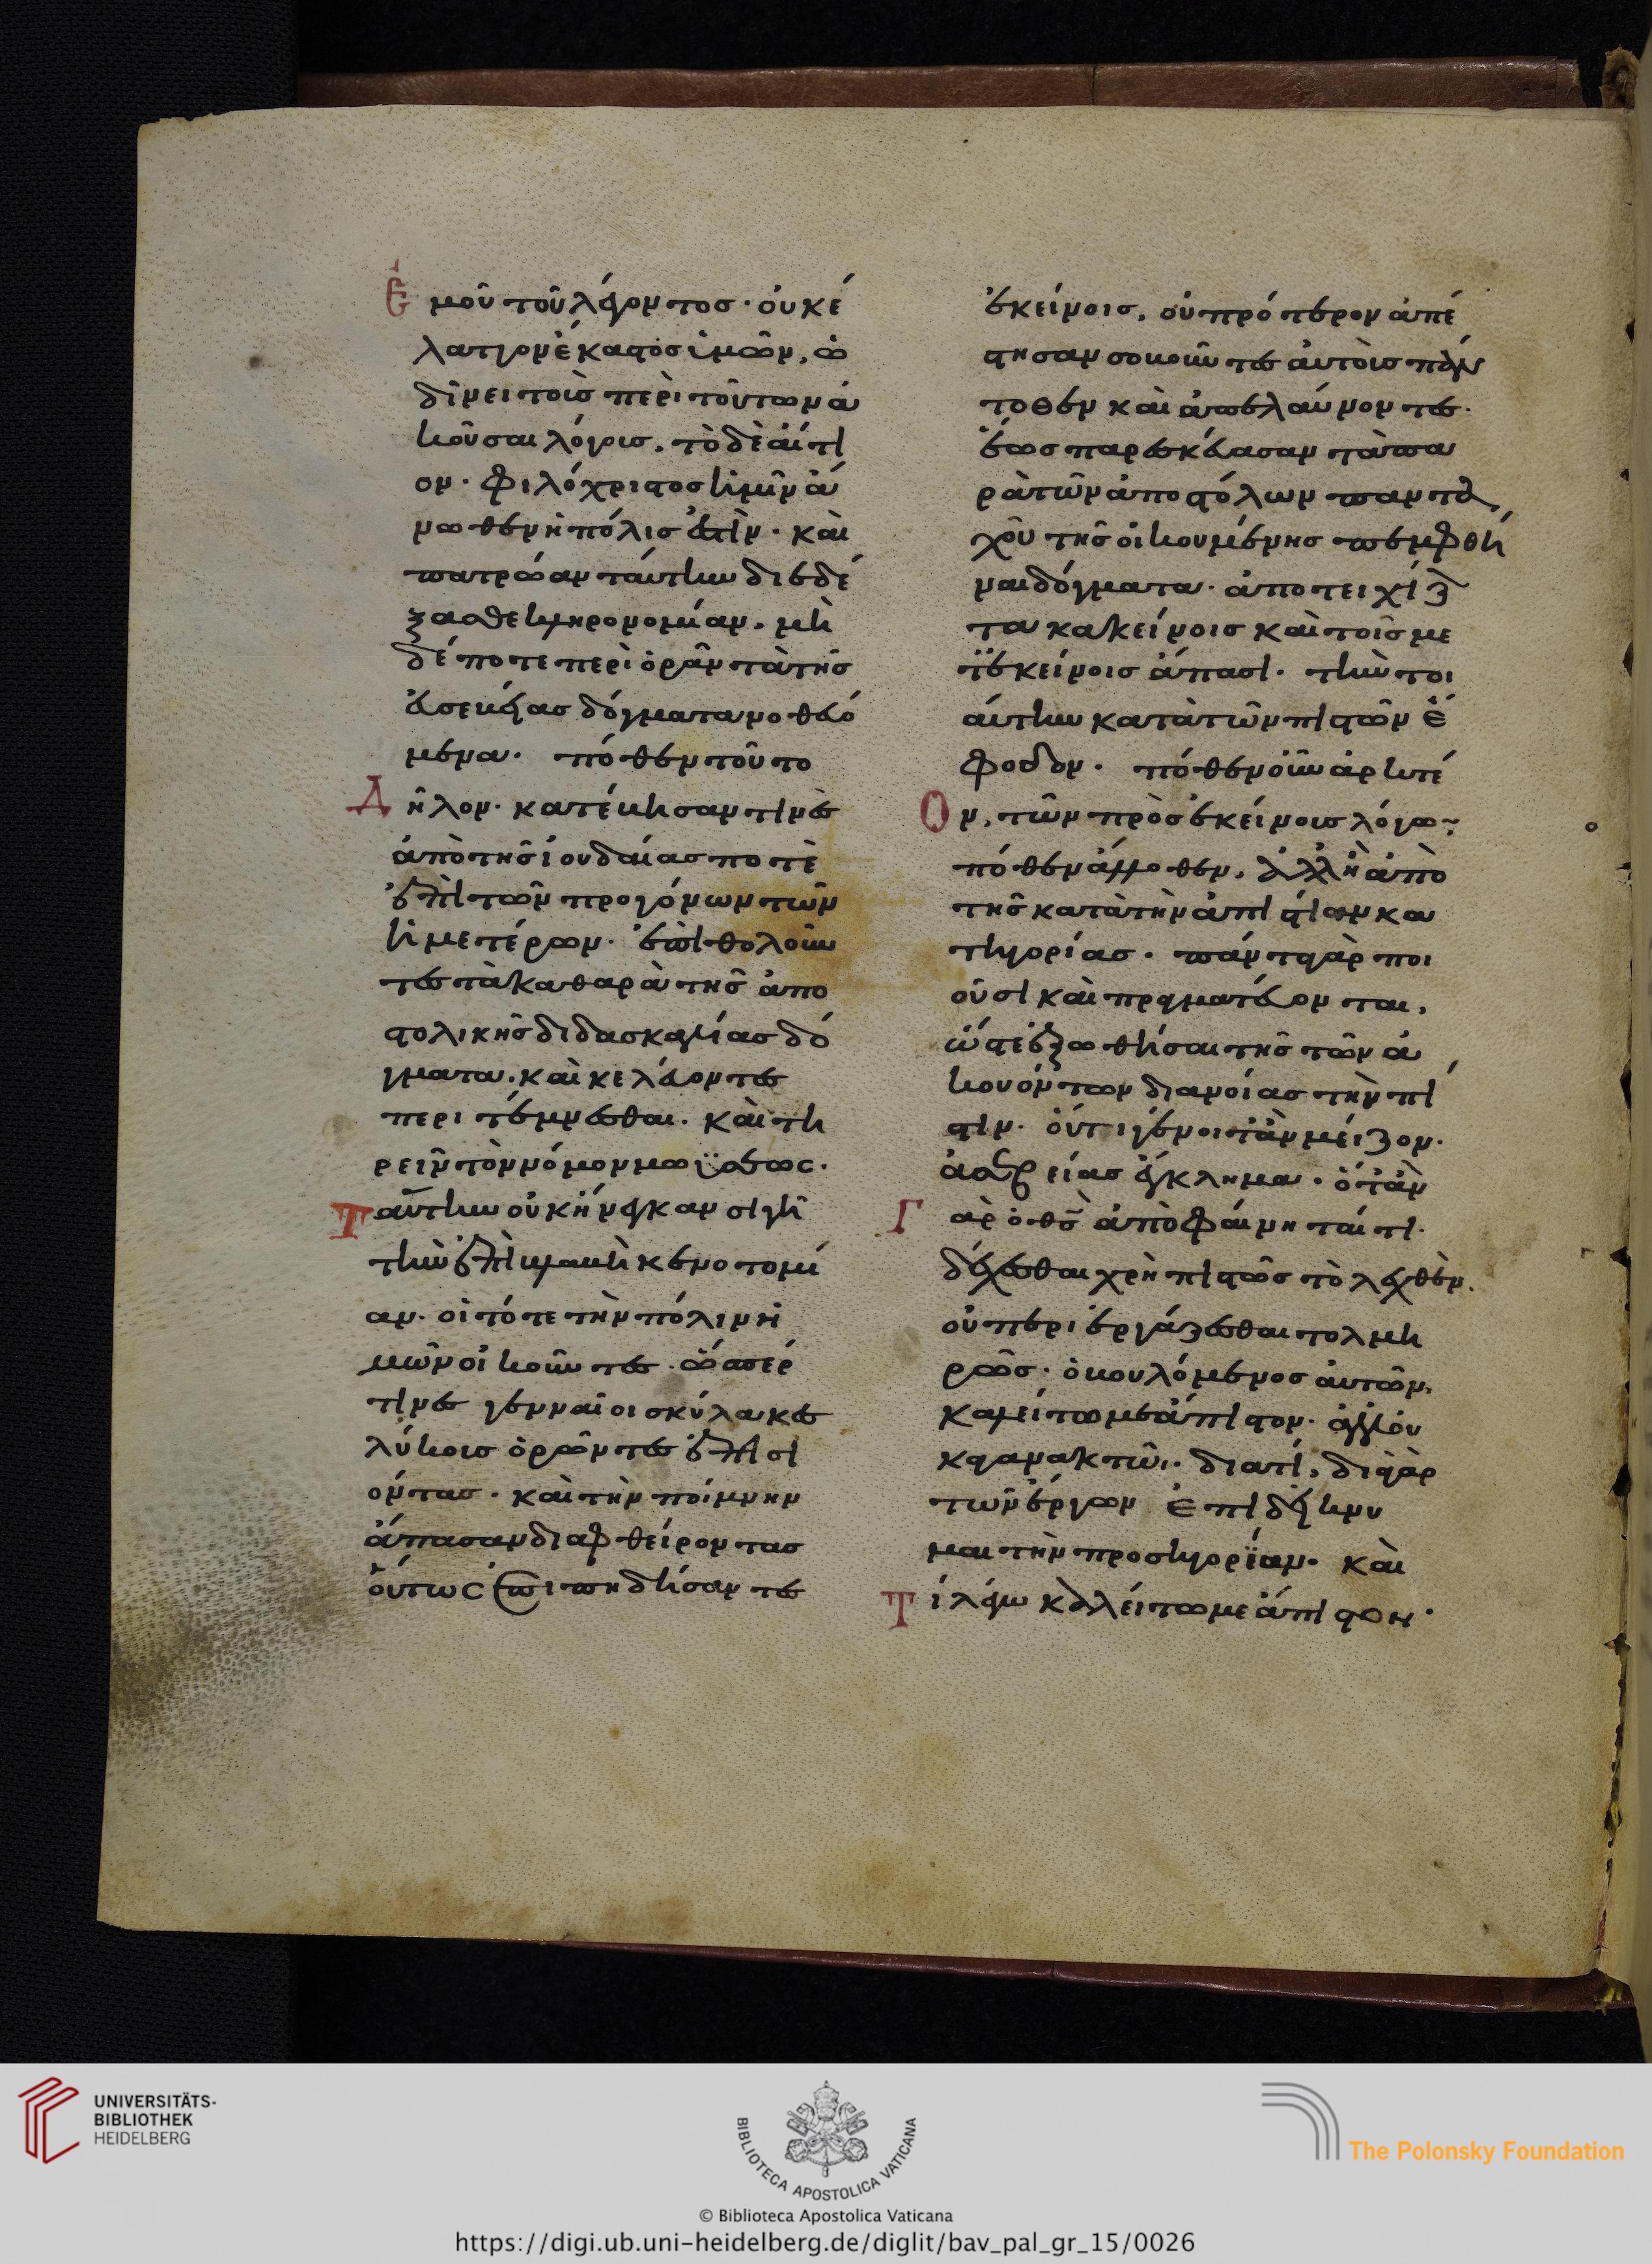 Ἐμοῦ τοῦ λέγοντος· οὐκ ἔ
λαττον ἕκαστος ὑμῶν, ὠ
δίνει τοῖς περὶ τούτων ἀ
κοῦσαι λόγοις. τὸ δὲ αἴτι
ον· φιλόχριστος ἡμῖν ἄ
νωθεν ἡ πόλις ἐστὶν· καὶ
πατρώαν ταύτην διεδέ
ξασθε κληρονομίαν. μὴ
δέποτε περὶ ὁρᾶν τὰ τῆς
εὐσεβείας δόγματα νοθευό
μενα. πόθεν τοῦτο
Δῆλον· κατέβησαν τινὲς
ἀπὸ τῆς ἰουδαίας ποτὲ
ἐπὶ τῶν προγόνων τῶν
ἡμετέρων· ἐπιθολοῦν
τες τὰ καθαρὰ τῆς ἀπο
στολικῆς διδασκαλίας δό
γματα. καὶ κελεύοντες
περιτέμνεσθαι. καὶ τη
ρεῖν τὸν νόμον μωϋσέως.
Ταύτην οὐκ ἤνεγκαν σιγῆ
τὴν ἐπιβλαβῆ κενοτομί
αν. οἱ τότε τὴν πόλιν ἡ
μῶν οἰκοῦντες. ὥσπερ
τινὲς γενναῖοι σκύλακες
λύκους ὁρῶντες ἐπεισι
όντας. καὶ τὴν ποίμνην
ἅπασαν διαφθείροντας
οὕτως ἐπιπηδήσαντες
ἐκείνοις, οὐ πρότερον ἀπέ
στησαν σοβοῦντες αὐτοὺς πάν
τοθεν καὶ ἀπελαύνοντες.
ἕως παρεσκεύασαν τὰ πα
ρὰ τῶν ἀποστόλων πανταχοῦ
τῆς οἰκουμένης πεμφθῆ
ναι δόγματα. ἀποτειχίζον
τα κακείνοις καὶ τοῖς με
τ' ἐκείνοις ἅπασι. τὴν τοι
αύτην κατὰ τῶν πιστῶν ἔ
φοδον. πόθεν οὖν ἀρκτέ
Ον, τῶν πρὸς ἐκείνους λόγων;
πόθεν ἄλλοθεν, ἀλλ' ἢ ἀπὸ
τῆς κατὰ τὴν ἀπιστίαν κα
τηγορίας. πάντα γὰρ ποι
οῦσι καὶ πραγματεύονται,
ὥστε ἐξωθῆσαι τῆς τῶν ἀ
κουόντων διανοίας τὴν πί
στιν. οὗ τί γένοιτ' ἂν μεῖζον.
ἀσεβείας ἔγκλημα. ὅταν
Γὰρ ὁ θς ἀποφαίνηταί τι.
δέχεσθαι χρὴ πιστῶς τὸ λεχθὲν.
οὐ περιεργάζεσθαι τολμη
ρῶς. ὁ βουλόμενος αὐτῶν,
καλείτω με ἄπιστον. ἀλλ' οὐ
κ ἀγανακτῶ. διατί, διὰ γὰρ
τῶν ἔργων ἐπιδείκνυ
μαι τὴν προσηγορίαν. καὶ
Τί λέγω καλείτω με ἄπιστον.
UNIVERSITÄTS-
BIBLIOTHEK
HEIDELBERG
BIBLIOTECA APOSTOLICA VATICANA
The Polonsky Foundation
© Biblioteca Apostolica Vaticana
https://digi.ub.uni-heidelberg.de/diglit/bav_pal_gr_15/0026